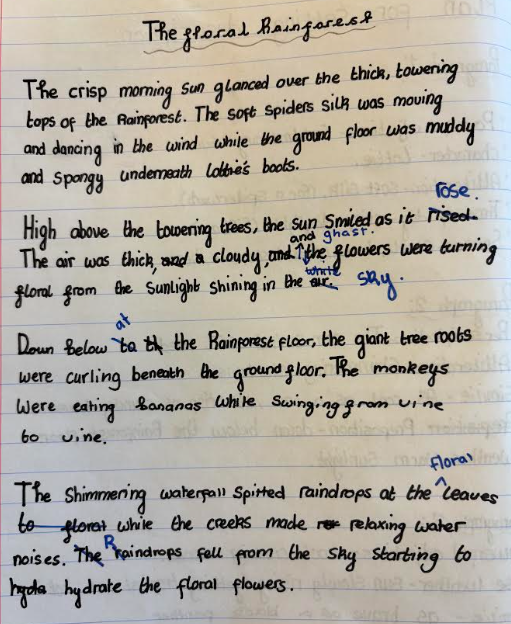 The floral Rainforest
The crisp morning sun glanced over the thick, towering
tops of the Rainforest. The soft spiders silk was moving
and dancing in the wind while the ground floor was muddy
and spongy underneath lottie's boots.
rose.
High above the towering trees, the sun smiled as it rised.
and ghast.
The air was thick, and a cloudy, and the flowers were turning
white
floral from the sunlight shining in the air. sky.
at
Down below to th the Rainforest floor, the giant tree roots
were curling beneath the ground floor. The monkeys
were eating bananas while swinging from vine
to vine.
floral
The shimmering waterfall spitted raindrops at the leaves
to floral while the creeks made relaxing water
noises. The Raindrops fell from the sky starting to
hyda hydrate the floral flowers.